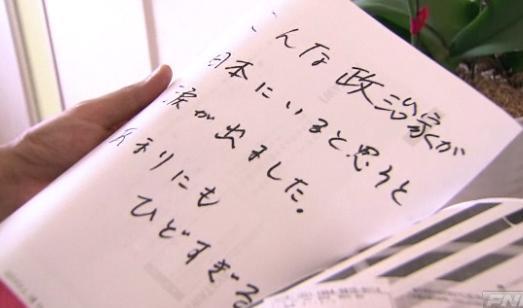 こんな政治家が
日本にいると思うと
涙が出ました。
あまりにも
ひどすぎる
FN